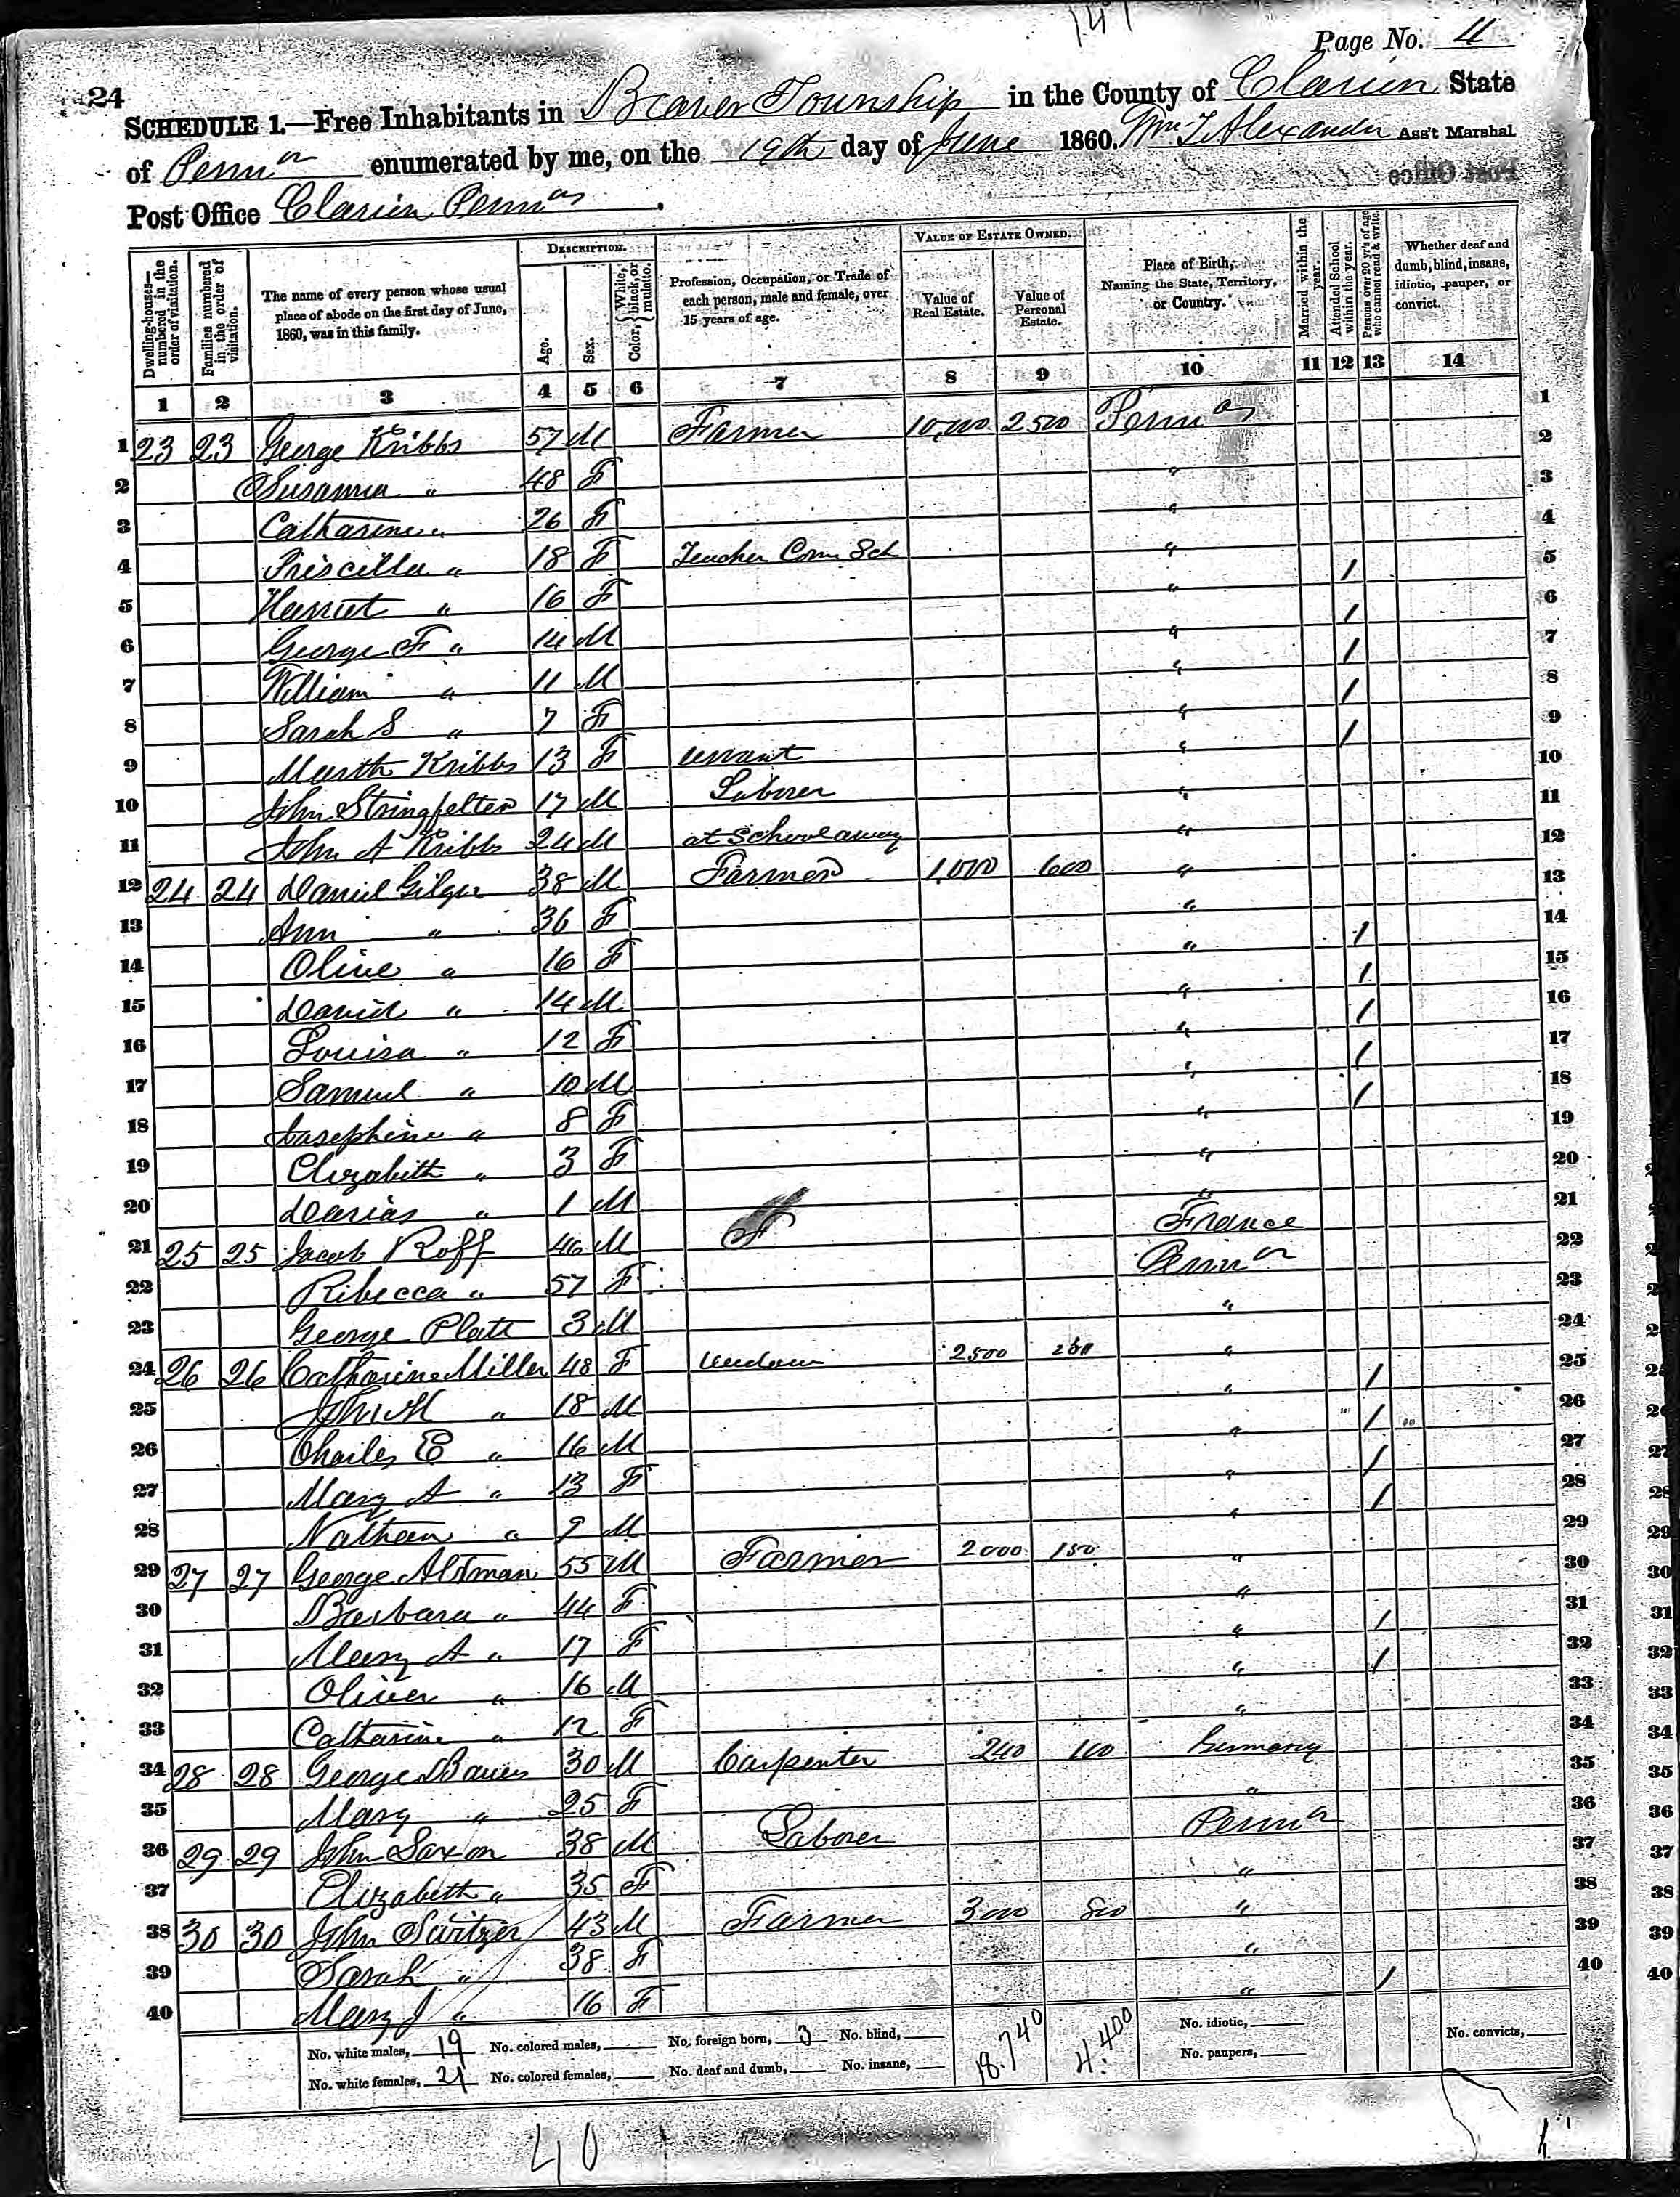 141
Page No. 4
24
SCHEDULE 1.—Free Inhabitants in Beaver Township in the County of Clarion State
of Penna enumerated by me, on the 19th day of June 1860. Wm T Alexander Ass't Marshal
Post Office Clarion Penna.
Dwelling-houses—numbered in the order of visitation.
Families numbered in the order of visitation.
The name of every person whose usual place of abode on the first day of June, 1860, was in this family.
DESCRIPTION.
Age.
Sex.
Color, {White, black, or mulatto.
Profession, Occupation, or Trade of each person, male and female, over 15 years of age.
VALUE OF ESTATE OWNED.
Value of Real Estate.
Value of Personal Estate.
Place of Birth, Naming the State, Territory, or Country.
Married within the year.
Attended School within the year.
Persons over 20 y'rs of age who cannot read & write.
Whether deaf and dumb, blind, insane, idiotic, pauper, or convict.
1 2 3 4 5 6 7 8 9 10 11 12 13 14
1 23 23 George Kribbs 57 M Farmer 10,000 2500 Penna 1
2 Susanna " 48 F " 2
3 Catharine " 26 F " 3
4 Priscilla " 18 F Teacher Com Sch " 4
5 Harriet " 16 F " / 5
6 George F " 14 M " / 6
7 William " 11 M " / 7
8 Sarah S " 7 F " / 8
9 Marth Kribbs 13 F servant " / 9
10 John Stringfelter 17 M Laborer " 10
11 John A Kribbs 24 M at School away " 11
12 24 24 Daniel Gilger 38 M Farmer 1,000 600 " 12
13 Ann " 36 F " 13
14 Olive " 16 F " / 14
15 David " 14 M " / 15
16 Louisa " 12 F " / 16
17 Samuel " 10 M " / 17
18 Josephine " 8 F " / 18
19 Elizabeth " 3 F " 19
20 Darias " 1 M " 20
21 25 25 Jacob Roff 46 M F France 21
22 Ribecca " 57 F Penna 22
23 George Platt 3 M " 23
24 26 26 Catharine Miller 48 F Widow 2500 250 " 24
25 John H " 18 M " / 25
26 Charles E " 16 M " / 26
27 Mary A " 13 F " / 27
28 Nathan " 9 M " / 28
29 27 27 George Altman 55 M Farmer 2000 150 " 29
30 Barbara " 44 F " 30
31 Mary A " 17 F " / 31
32 Oliver " 16 M " / 32
33 Catharine " 12 F " 33
34 28 28 George Bauer 30 M Carpenter 240 100 Germany 34
35 Mary " 25 F " 35
36 29 29 John Saxon 38 M Laborer Penna 36
37 Elizabeth " 35 F " 37
38 30 30 John Switzer 43 M Farmer 3000 800 " 38
39 Sarah " 38 F " 39
40 Mary J " 16 F " / 40
No. white males, 19 No. colored males, No. foreign born, 3 No. blind, 18.740 4.400 No. idiotic, No. convicts,
No. white females, 21 No. colored females, No. deaf and dumb, No. insane, No. paupers,
40